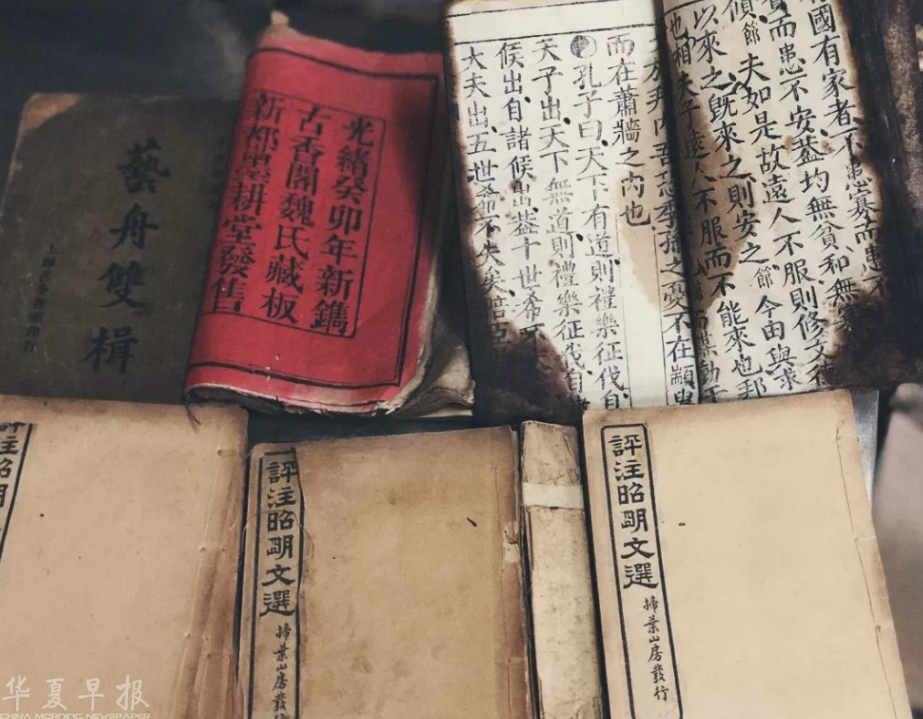 藝舟雙楫
光緒癸卯年新鐫
古香閣魏氏藏板
新都墨耕堂發售
國有家者、不患寡而患
貧而患不安、蓋均無貧、和無寡
傾 節 夫如是故遠人不服則修文德
以來之既來之則安之 節 今由與求
也相夫子遠人不服而不能來也邦
於邦內吾恐季孫之憂不在顓臾
而在蕭牆之內也
孔子曰、天下有道則禮樂征伐、自
天子出、天下無道則禮樂征伐自
候出、自諸候出、蓋十世希不
大夫出、五世希不失矣、陪臣
評注昭明
評注昭明文選
掃葉山房發行
評注昭明文選
掃葉山房發行
华夏早报
CHINA MORNING NEWSPAPER